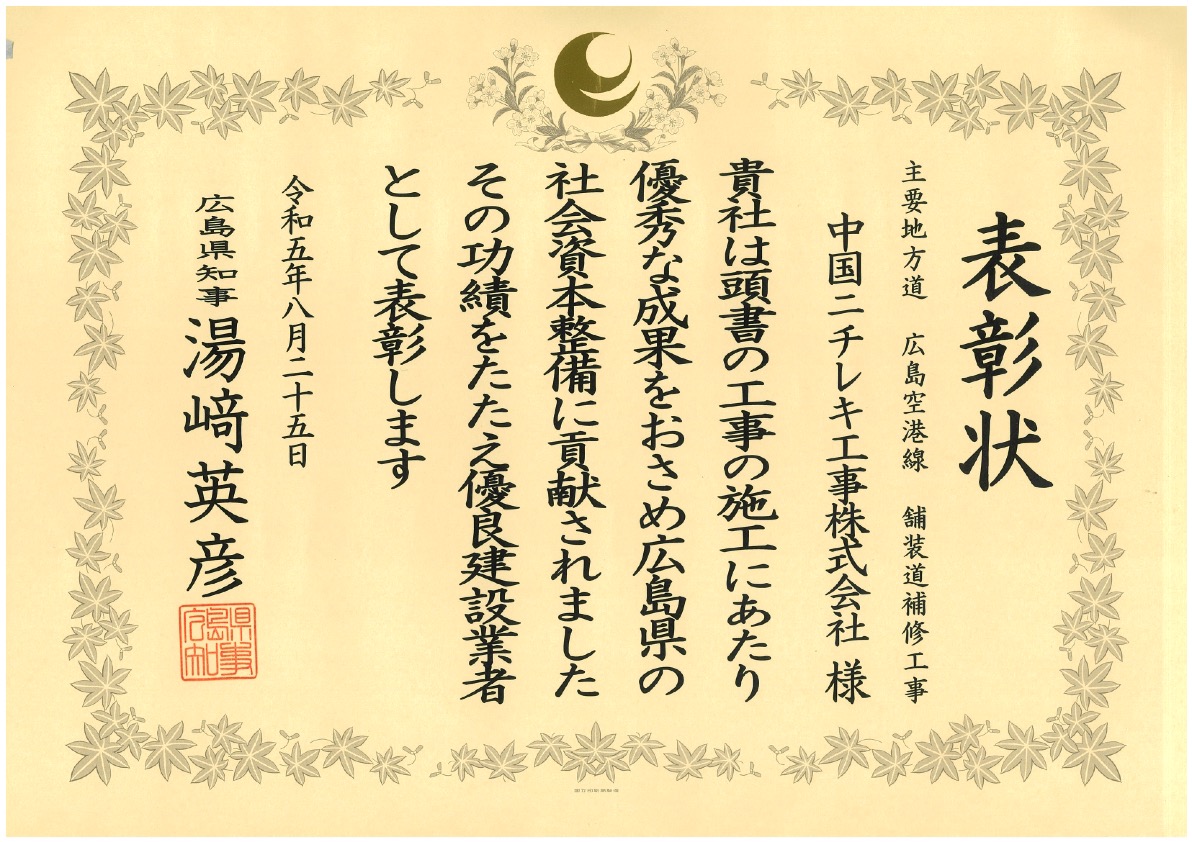 表彰状
主要地方道 広島空港線 舗装道補修工事
中国ニチレキ工事株式会社 様
貴社は頭書の工事の施工にあたり
優秀な成果をおさめ広島県の
社会資本整備に貢献されました
その功績をたたえ優良建設業者
として表彰します
令和五年八月二十五日
広島県知事 湯﨑英彦
広島県知事